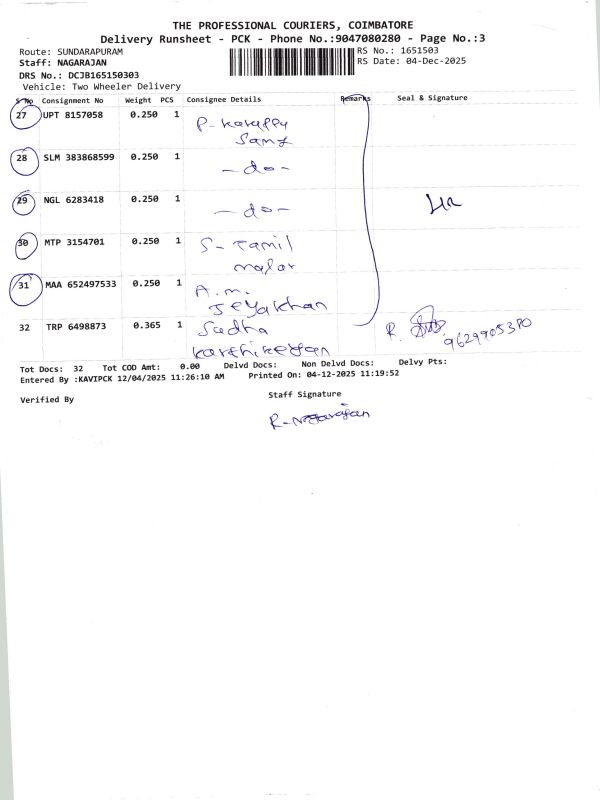 THE PROFESSIONAL COURIERS, COIMBATORE
Delivery Runsheet - PCK - Phone No.:9047080280 - Page No.:3
Route: SUNDARAPURAM RS No.: 1651503
Staff: NAGARAJAN RS Date: 04-Dec-2025
DRS No.: DCJB165150303
Vehicle: Two Wheeler Delivery
S No Consignment No Weight PCS Consignee Details Remarks Seal & Signature
27 UPT 8157058 0.250 1 P. Karuppu
Samy
28 SLM 383868599 0.250 1 - do -
29 NGL 6283418 0.250 1 - do -
30 MTP 3154701 0.250 1 S- Tamil
malar
31 MAA 652497533 0.250 1 A.m.
Jeyakhan
32 TRP 6498873 0.365 1 Sadha R.
Karthikeyan
Tot Docs: 32 Tot COD Amt: 0.00 Delvd Docs: Non Delvd Docs: Delvy Pts:
Entered By :KAVIPCK 12/04/2025 11:26:10 AM Printed On: 04-12-2025 11:19:52
Verified By Staff Signature
R-Nagarajan